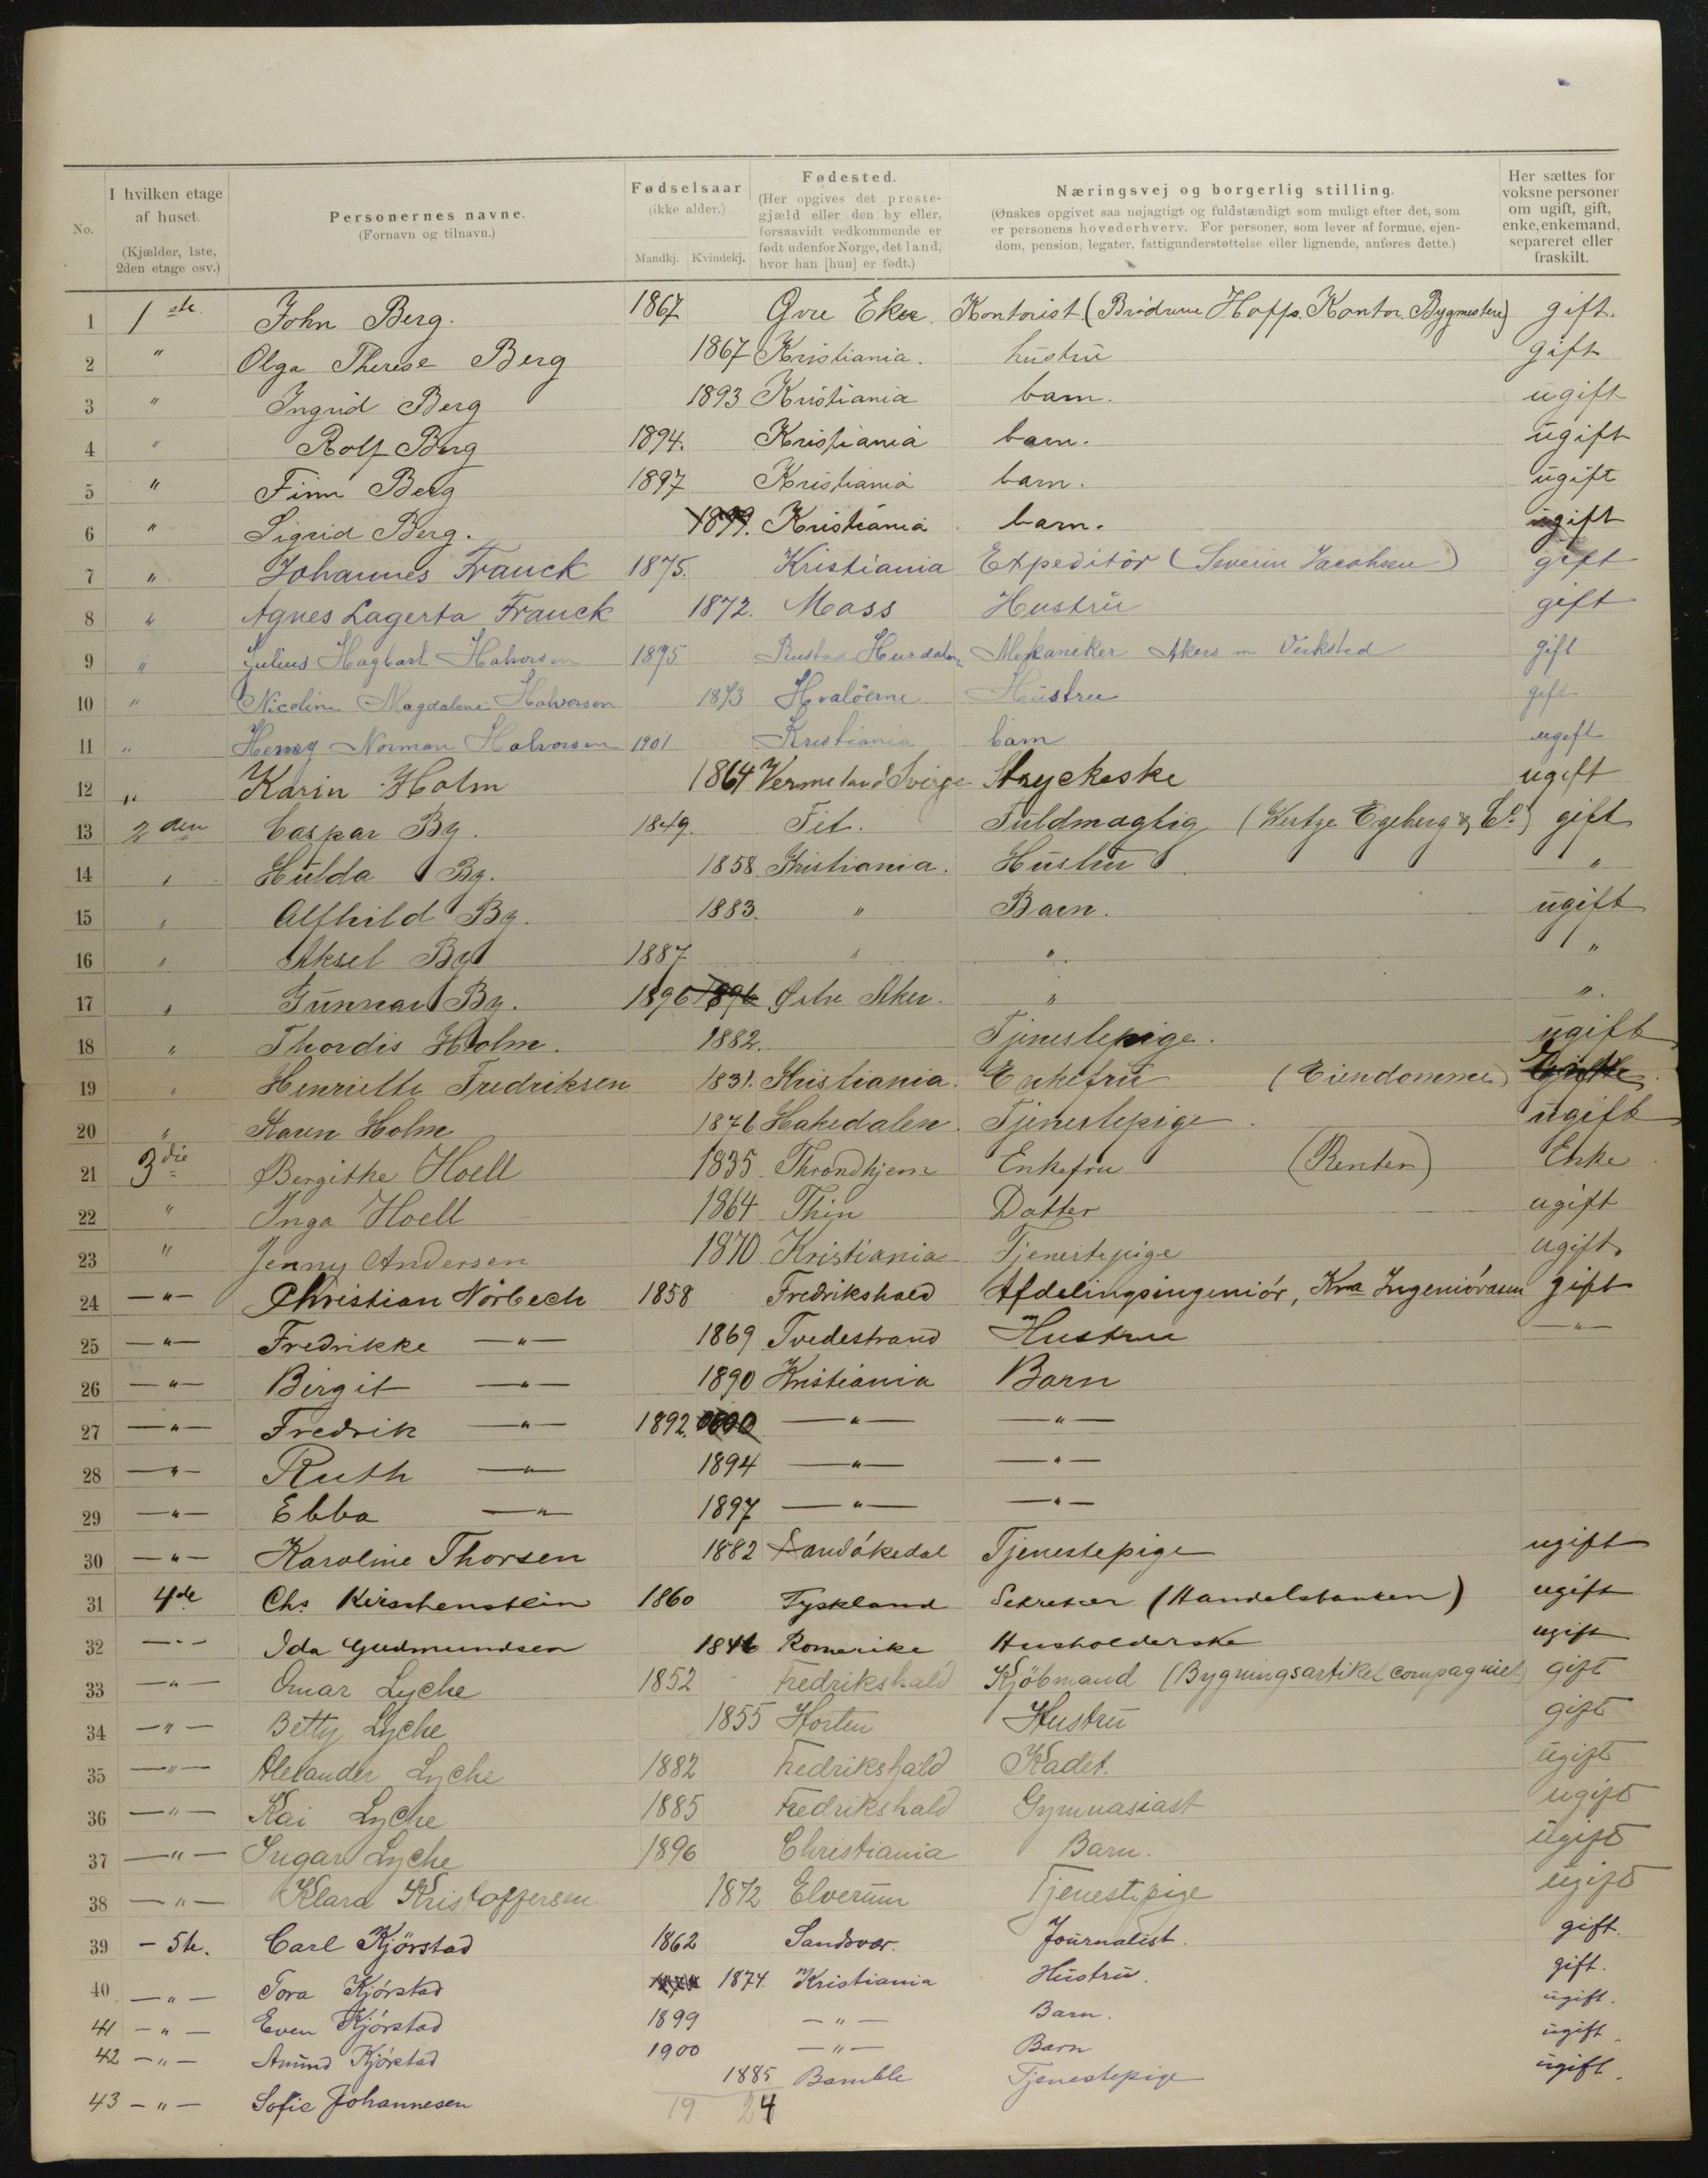 No.
I hvilken etage af huset. (Kjælder, 1ste, 2den etage osv.)
Personernes navne. (Fornavn og tilnavn.)
Fødselsaar (ikke alder.) Mandkj. Kvindekj.
Fødested. (Her opgives det prestegjæld eller den by eller, forsaavidt vedkommende er født udenfor Norge, det land, hvor han [hun] er født.)
Næringsvej og borgerlig stilling. (Ønskes opgivet saa nøjagtigt og fuldstændigt som muligt efter det, som er personens hovederhverv. For personer, som lever af formue, ejendom, pension, legater, fattigunderstøttelse eller lignende, anføres dette.)
Her sættes for voksne personer om ugift, gift, enke, enkemand, separeret eller fraskilt.
1 1ste John Berg. 1867 Øvre Eker. Kontorist (Brödrene Hoffs Kontor. Bygmestere) gift.
2 " Olga Therese Berg 1867 Kristiania. hustru gift
3 " Ingrid Berg 1893 Kristiania barn. ugift
4 " Rolf Berg 1894. Kristiania barn. ugift
5 " Finn Berg 1897 Kristiania barn. ugift
6 " Sigrid Berg. 1899. Kristiania barn. ugift
7 " Johannes Franck 1875. Kristiania Expeditör (Severin Jacobsen) gift
8 " Agnes Lagerta Franck 1872. Moss Hustru gift
9 " Julius Hagbart Halvorsen 1875 Hurdalen Mekaniker Akers m Verksted gift
10 " Nicoline Magdalene Halvorsen 1873 Hvalöerne Hustru gift
11 " Henry Norman Halvorsen 1901 Kristiania barn ugift
12 " Karin Holm 1864 Vermeland Sverge Stryckeske ugift
13 2den Caspar By. 1849. Fet. Fuldmægtig (Westye Egeberg & Co) gift
14 " Hulda By. 1858 Kristiania. Hustru "
15 " Alfhild By. 1883. " Barn. ugift
16 " Aksel By 1887 " " "
17 " Gunnar By. 1896 1896 Østre Aker. " ".
18 " Thordis Holm. 1882. Tjenestepige. ugift
19 " Henriette Fredriksen 1831. Kristiania. Enkefru (Eiendomme) Enke
20 " Karen Holm 1876 Hakedalen. Tjenestepige. ugift
21 3die Bergithe Hoell 1835 Throndhjem Enkefru (Renter) Enke
22 " Inga Hoell 1864 Thin Datter ugift
23 " Jenny Andersen 1870 Kristiania Tjenestepige ugift
24 —"— Christian Nörbech 1858 Fredrikshald Afdelingsingeniör, Kra Ingeniörvæsen gift
25 —"— Fredrikke —"— 1869 Tvedestrand Hustru —"—
26 —"— Birgit —"— 1890 Kristiania Barn
27 —"— Fredrik —"— 1892. —"— —"—
28 —"— Ruth —"— 1894 —"— —"—
29 —"— Ebba —"— 1897 —"— —"—
30 —"— Karoline Thorsen 1882 Sandökedal Tjenestepige ugift
31 4de Chs. Kirschenstein 1860 Tyskland Sekretær (Handelsbanken) ugift
32 —"— Ida Gudmundsen 1846 Romerike Husholderske ugift
33 —"— Omar Lyche 1852 Fredrikshald Kjöbmand (Bygningsartikel compagniet) gift
34 —"— Betty Lyche 1855 Horten Hustru gift
35 —"— Alexander Lyche 1882 Fredrikshald Kadet. ugift
36 —"— Kai Lyche 1885 Fredrikshald Gymnasiast ugift
37 —"— Ingar Lyche 1896 Christiania Barn. ugift
38 —"— Klara Kristoffersen 1872 Elverum Tjenestepige ugift
39 – 5te. Carl Kjörstad 1862 Sandsvær. Journalist. gift.
40 —"— Tora Kjörstad 1874. Kristiania Hustru. gift.
41 —"— Even Kjörstad 1899 —"— Barn. ugift.
42 —"— Amund Kjörstad 1900 —"— Barn ugift.
43 —"— Sofie Johannesen 1885 Bamble Tjenestepige ugift.
19 24